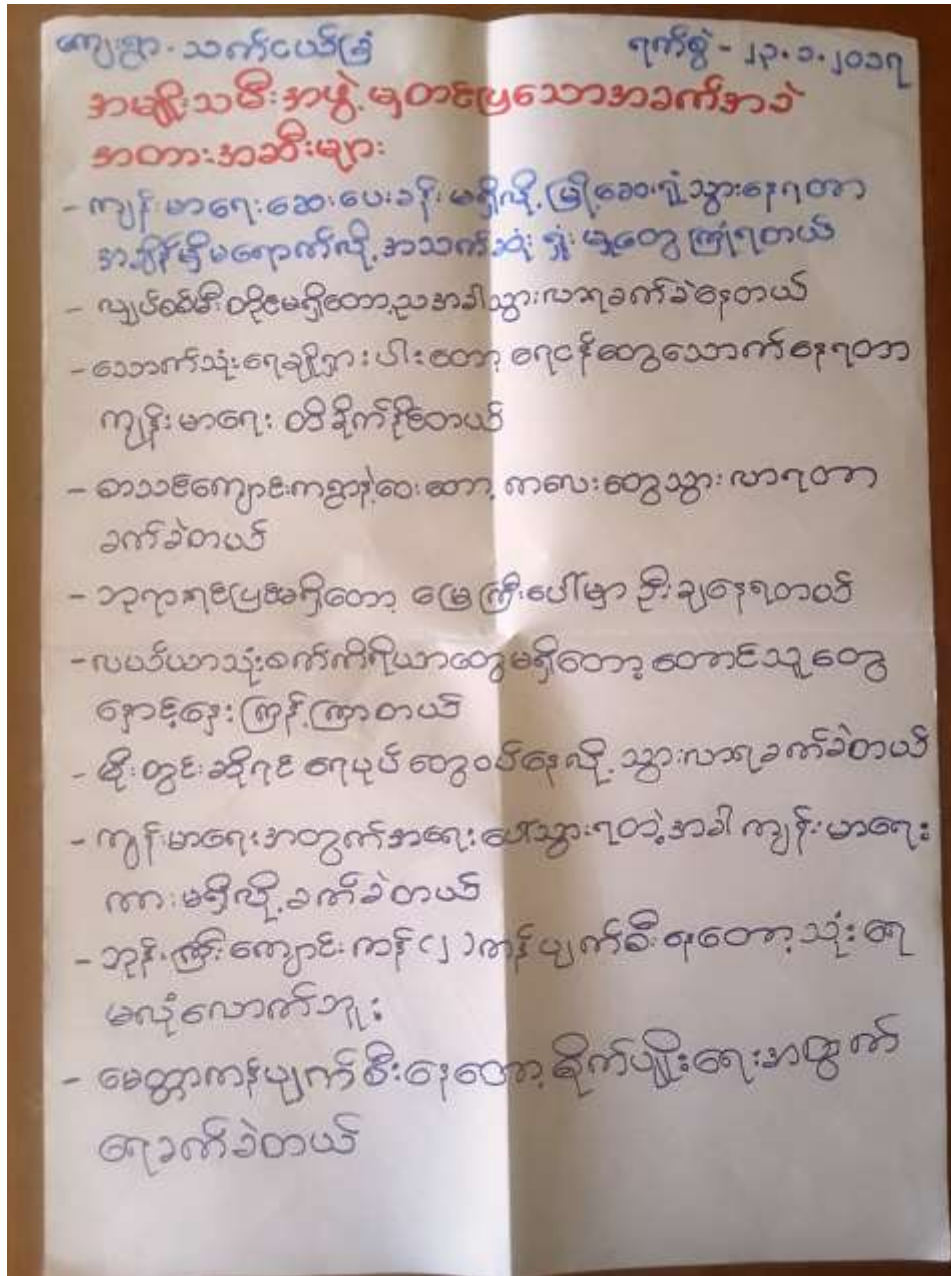 ကျေးရွာ - သက်ငယ်ခြံ ရက်စွဲ - ၂၃.၁.၂၀၁၇
အမျိုးသမီးအဖွဲ့မှတင်ပြသောအခက်အခဲ
အတားအဆီးများ
- ကျန်းမာရေးဆေးပေးခန်းမရှိလို့မြို့ဆေးရုံသွားနေရတာ
အချိန်မှီမရောက်လို့အသက်ဆုံးရှုံးမှုတွေကြုံရတယ်
- လျှပ်စစ်မီးတိုင်မရှိတော့ညအခါသွားလာရခက်ခဲနေတယ်
- သောက်သုံးရေချိုရှားပါးတော့ ရေငန်တွေသောက်နေရတာ
ကျန်းမာရေး ထိခိုက်နိုင်တယ်
- စာသင်ကျောင်းကရွာနဲ့ဝေးတော့ ကလေးတွေသွားလာရတာ
ခက်ခဲတယ်
- ဘုရားရင်ပြင်မရှိတော့ မြေကြီးပေါ်မှာ ဦးချနေရတယ်
- လယ်ယာသုံးစက်ကိရိယာတွေမရှိတော့ တောင်သူတွေ
နှောင့်နှေးကြန့်ကြာတယ်
- မိုးတွင်းဆိုရင် ရေပုပ်တွေဝပ်နေလို့ သွားလာရခက်ခဲတယ်
- ကျန်းမာရေးအတွက်အရေးပေါ်သွားရတဲ့အခါ ကျန်းမာရေး
ကားမရှိလို့ခက်ခဲတယ်
- ဘုန်းကြီးကျောင်းကန် (၂) ကန်ပျက်စီးနေတော့ သုံးရေ
မလုံလောက်ဘူး
- မေတ္တာကန်ပျက်စီးနေတော့ စိုက်ပျိုးရေးအတွက်
ရေခက်ခဲတယ်